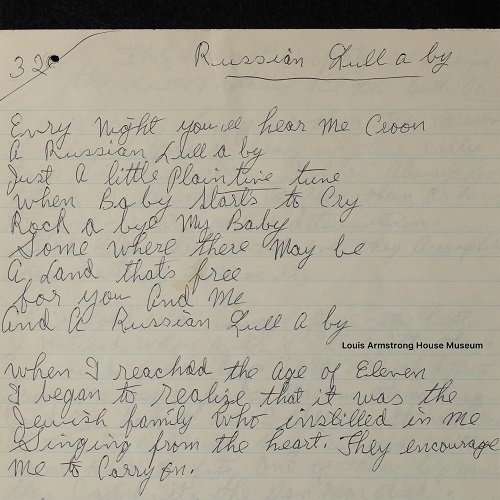 32
Russian Lull a by
Evry Night you'll hear me Croon
A Russian Lull a by
Just A little Plaintive tune
when Baby starts to Cry
Rock a bye My Baby
Some where there May be
A Land thats free
for you And Me
And A Russian Lull a by
Louis Armstrong House Museum
when I reached the age of Eleven
I began to realize that it was the
Jewish family who instilled in me
Singing from the heart. They encourage
me to Carry on.